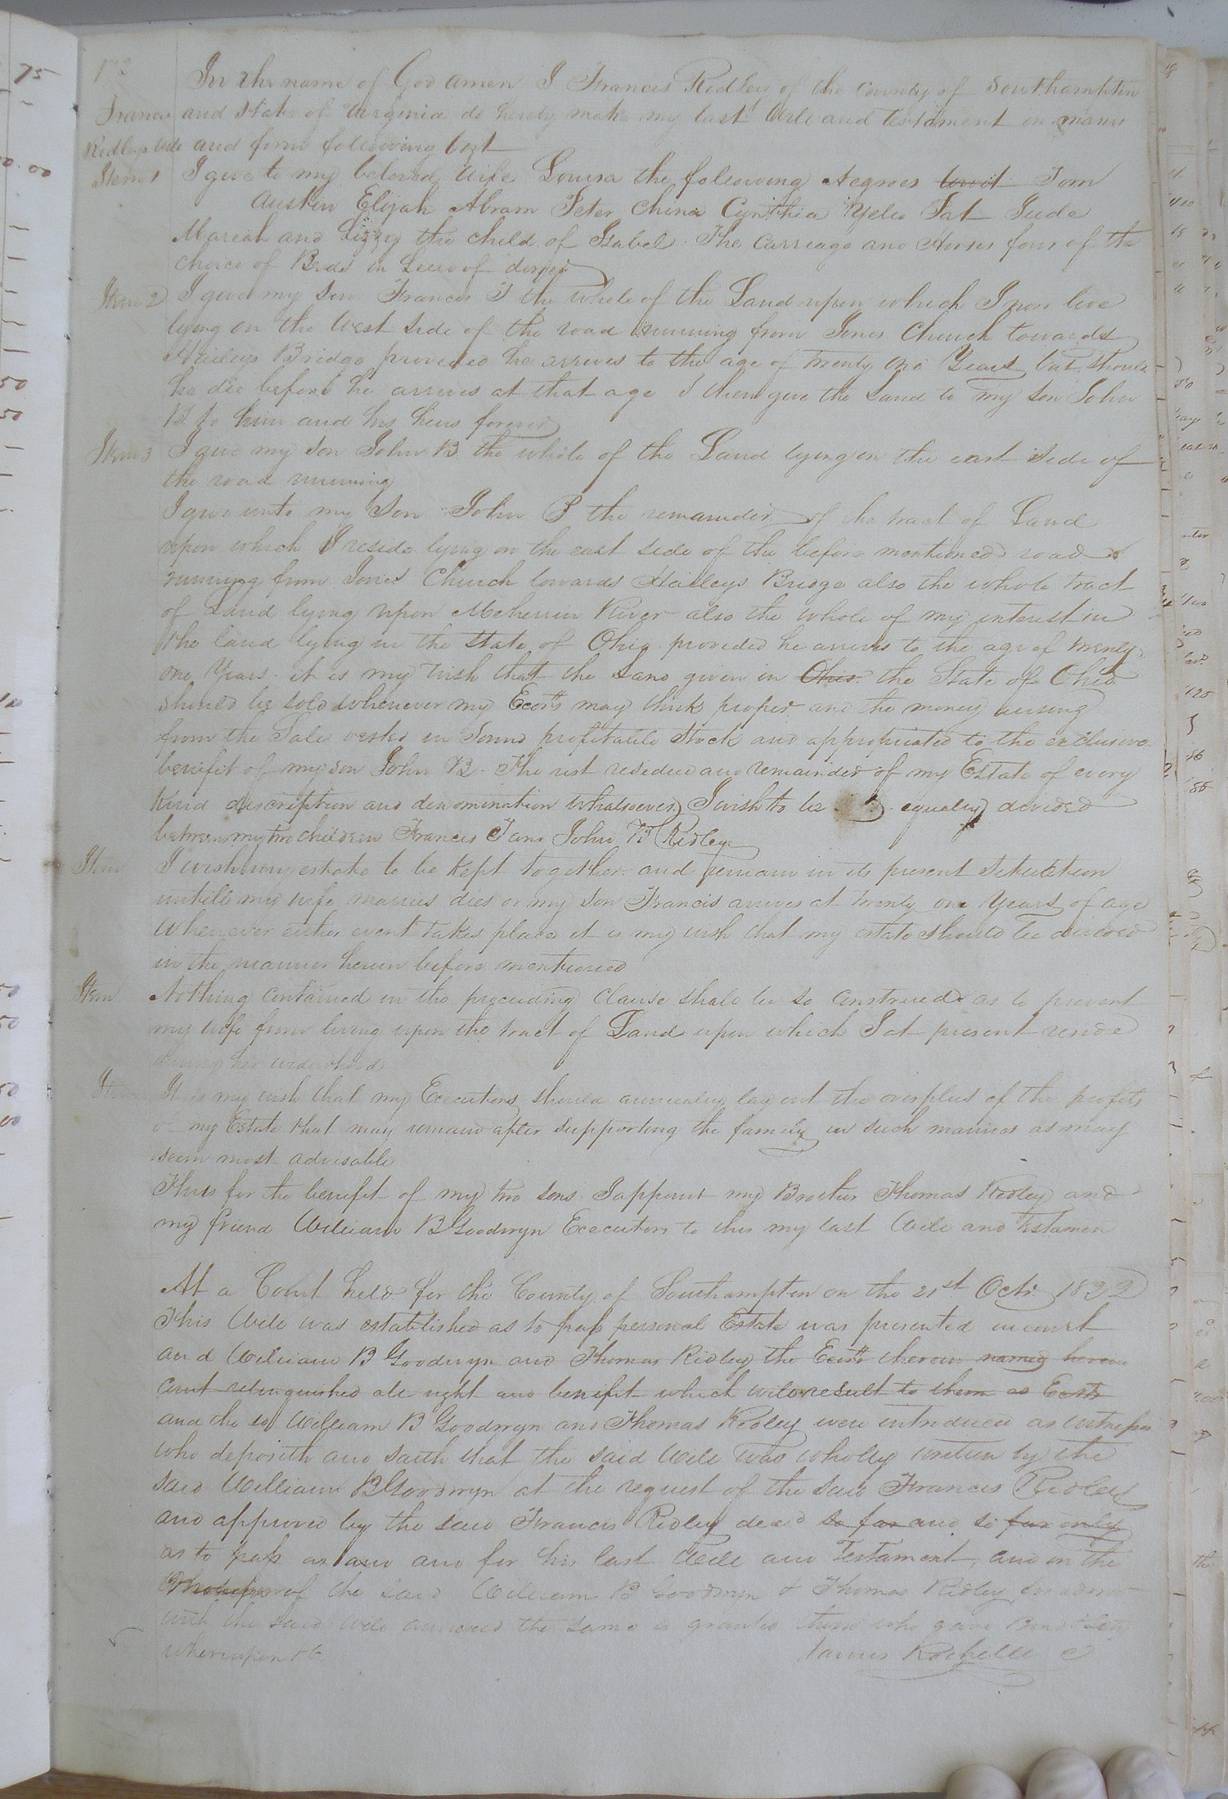 In the name of God amen I Francis Ridley of the County of Southampton
Francis and State of Virginia do hereby make my last Will and testament in manner
Ridleys Will and form following
Item 1 I give to my beloved Wife Louisa the following Negroes towit Tom
Austin Elijah Abram Peter China Cynthia Pat Juda
Mariah and Lizzy the child of Isabel. The Carriage and Horses four of the
choice of Beds in Lieu of dower
Item 2 I give my Son Francis T the whole of the Land upon which I now live
lying on the West side of the road running from Jones Church towards
Haileys Bridge provided he arrives to the age of twenty one Years but should
he die before he arrives at that age I then give the Land to my Son John
B to him and his heirs forever
Item 3 I give my Son John B the whole of the Land lying on the east side of
the road running
I give unto my Son John B the remainder of the tract of Land
upon which I reside lying on the east side of the before mentioned road
running from Jones Church towards Haileys Bridge also the whole tract
of Land lying upon Meherrin River also the whole of my interest in
the land lying in the State of Ohio provided he arrives to the age of twenty
one Years. it is my wish that the Land given in Ohio the State of Ohio
should be sold whenever my Exors may think proper and the money arising
from the Sale vested in Some profitable Stock and appropriated to the exclusive
benefit of my son John B. The rest residue and remainder of my Estate of every
kind description and denomination whatsoever I wish to be equally divided
between my two children Francis T and John B Ridley
Item I wish my estate to be kept together and remain in its present situation
untill my wife marries dies or my Son Francis arrives at twenty one Years of age
Whenever either event takes place it is my wish that my estate should be divided
in the manner herein before mentioned
Item Nothing contained in the preceeding Clause shall be so construed as to prevent
my wife from living upon the tract of Land upon which I at present reside
during her widowhood
Item It is my wish that my Executors should annually lay out the surplus of the profits
of my Estate that may remain after supporting the family in such manner as may
seem most advisable
Thus for the benefit of my two sons I appoint my Brother Thomas Ridley and
my friend William B Goodwyn Executors to this my last Will and Testamen
At a Court held for the County of Southampton on the 21st Octr
This Will was established as to pass personal Estate was presented in court
and William B Goodwyn and Thomas Ridley the Exors therein named
relinquished all right and benefit which will result to them as Exors
and the sd William B Goodwyn and Thomas Ridley were introduced as witnesses
who deposeth and saith that the said Will was wholly written by the
said William B Goodwyn at the request of the said Francis Ridley
and approved by the said Francis Ridley decd so far and so far only
as to pass as and for his last Will and Testament, and on the
of the said William B Goodwyn & Thomas Ridley
with the said Will annexed the same is granted them who gave Bond
whereupon &c
James Rochelle C